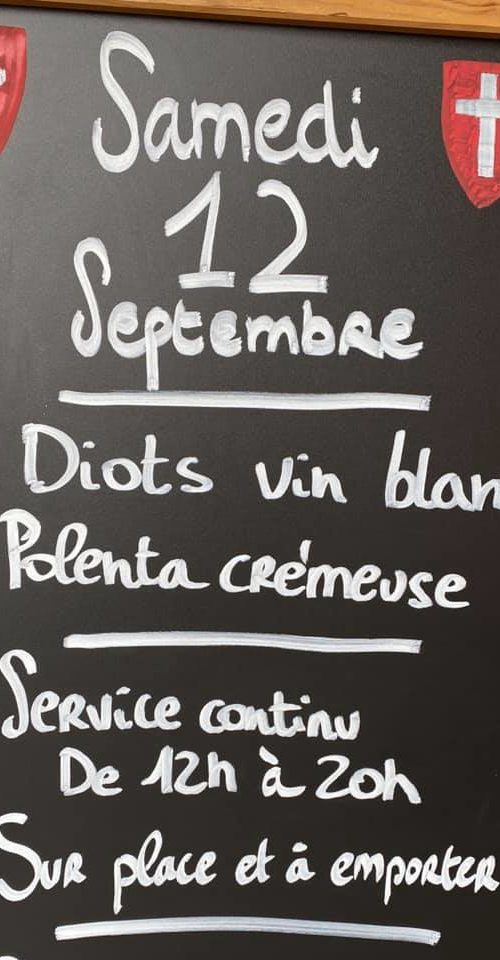 Samedi
12
Septembre
Diots vin blan
Polenta crémeuse
Service continu
De 12h à 20h
Sur place et à emporter